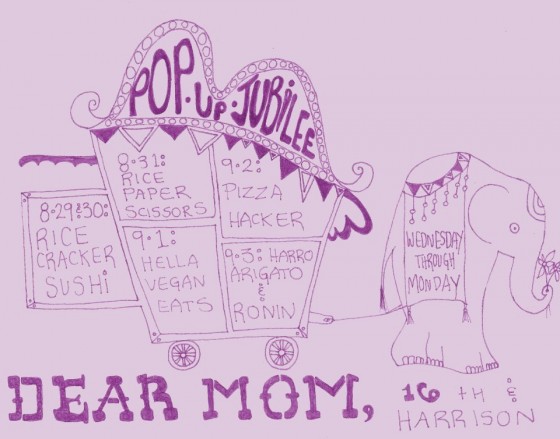 POP·UP·JUBILEE
8·29&30:
RICE
CRACKER
SUSHI
8·31:
RICE
PAPER
SCISSORS
9·1:
HELLA
VEGAN
EATS
9·2:
PIZZA
HACKER
9·3: HARRO
ARIGATO
&
RONIN
WEDNESDAY
THROUGH
MONDAY
DEAR MOM,
16 TH &
HARRISON